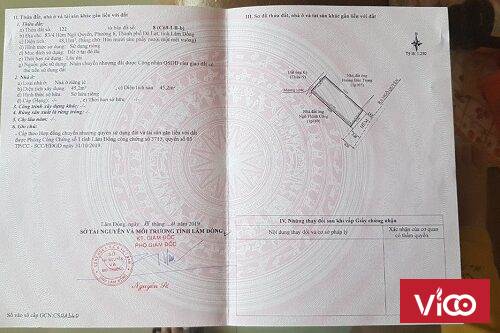 II. Thửa đất, nhà ở và tài sản khác gắn liền với đất
1. Thửa đất:
a) Thửa đất số: 122 tờ bản đồ số: 8 (C69-I-B-b)
b) Địa chỉ: 83/4 Hẻm Ngô Quyền, Phường 6, Thành phố Đà Lạt, tỉnh Lâm Đồng
d) Hình thức sử dụng: Sử dụng riêng
đ) Mục đích sử dụng: Đất ở tại đô thị
e) Thời hạn sử dụng: Lâu dài
g) Nguồn gốc sử dụng: Nhận chuyển nhượng đất được Công nhận QSDĐ như giao đất có
thu tiền sử dụng đất
2. Nhà ở:
a) Loại nhà ở: Nhà ở riêng lẻ
b) Diện tích xây dựng: 45,2m² c) Diện tích sàn: 45,2m²
d) Hình thức sở hữu: Sở hữu riêng
đ) Cấp (Hạng): -/- e) Thời hạn sở hữu: -/-
3. Công trình xây dựng khác: -/-
4. Rừng sản xuất là rừng trồng: -/-
5. Cây lâu năm: -/-
6. Ghi chú:
- Cấp theo Hợp đồng chuyển nhượng quyền sử dụng đất và tài sản gắn liền với đất
được Phòng Công Chứng số 1 tỉnh Lâm Đồng công chứng số 3715, quyển số 05
TP/CC - SCC/HĐGD ngày 31/10/2019
Lâm Đồng, ngày 2019
SỞ TÀI NGUYÊN VÀ MÔI TRƯỜNG TỈNH LÂM ĐỒNG
KT. GIÁM ĐỐC
PHÓ GIÁM ĐỐC
SỞ
TÀI NGUYÊN
VÀ
MÔI TRƯỜNG
Số vào sổ cấp GCN:
III. Sơ đồ thửa đất, nhà ở và tài sản khác gắn liền với đất
Tỷ lệ: 1:200
Nhà đất ông
Hoàng Đức Trung
Nhà đất ông
Ngô Thành Công
IV. Những thay đổi sau khi cấp Giấy chứng nhận
Nội dung thay đổi và cơ sở pháp lý
Xác nhận của cơ quan
có thẩm quyền
VICO